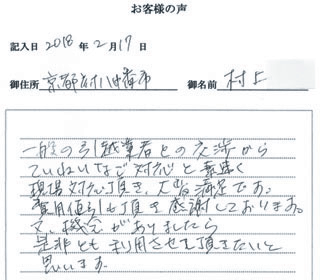 お客様の声
記入日 2018年2月17日
御住所 京都府八幡市
御名前 村上
一般の引越業者との交渉から
ていねいなご対応と素速く
現場対応頂き、大変満足です。
費用値引も頂き感謝しております。
又、機会がありましたら
是非とも利用させて頂きたいと
思います。